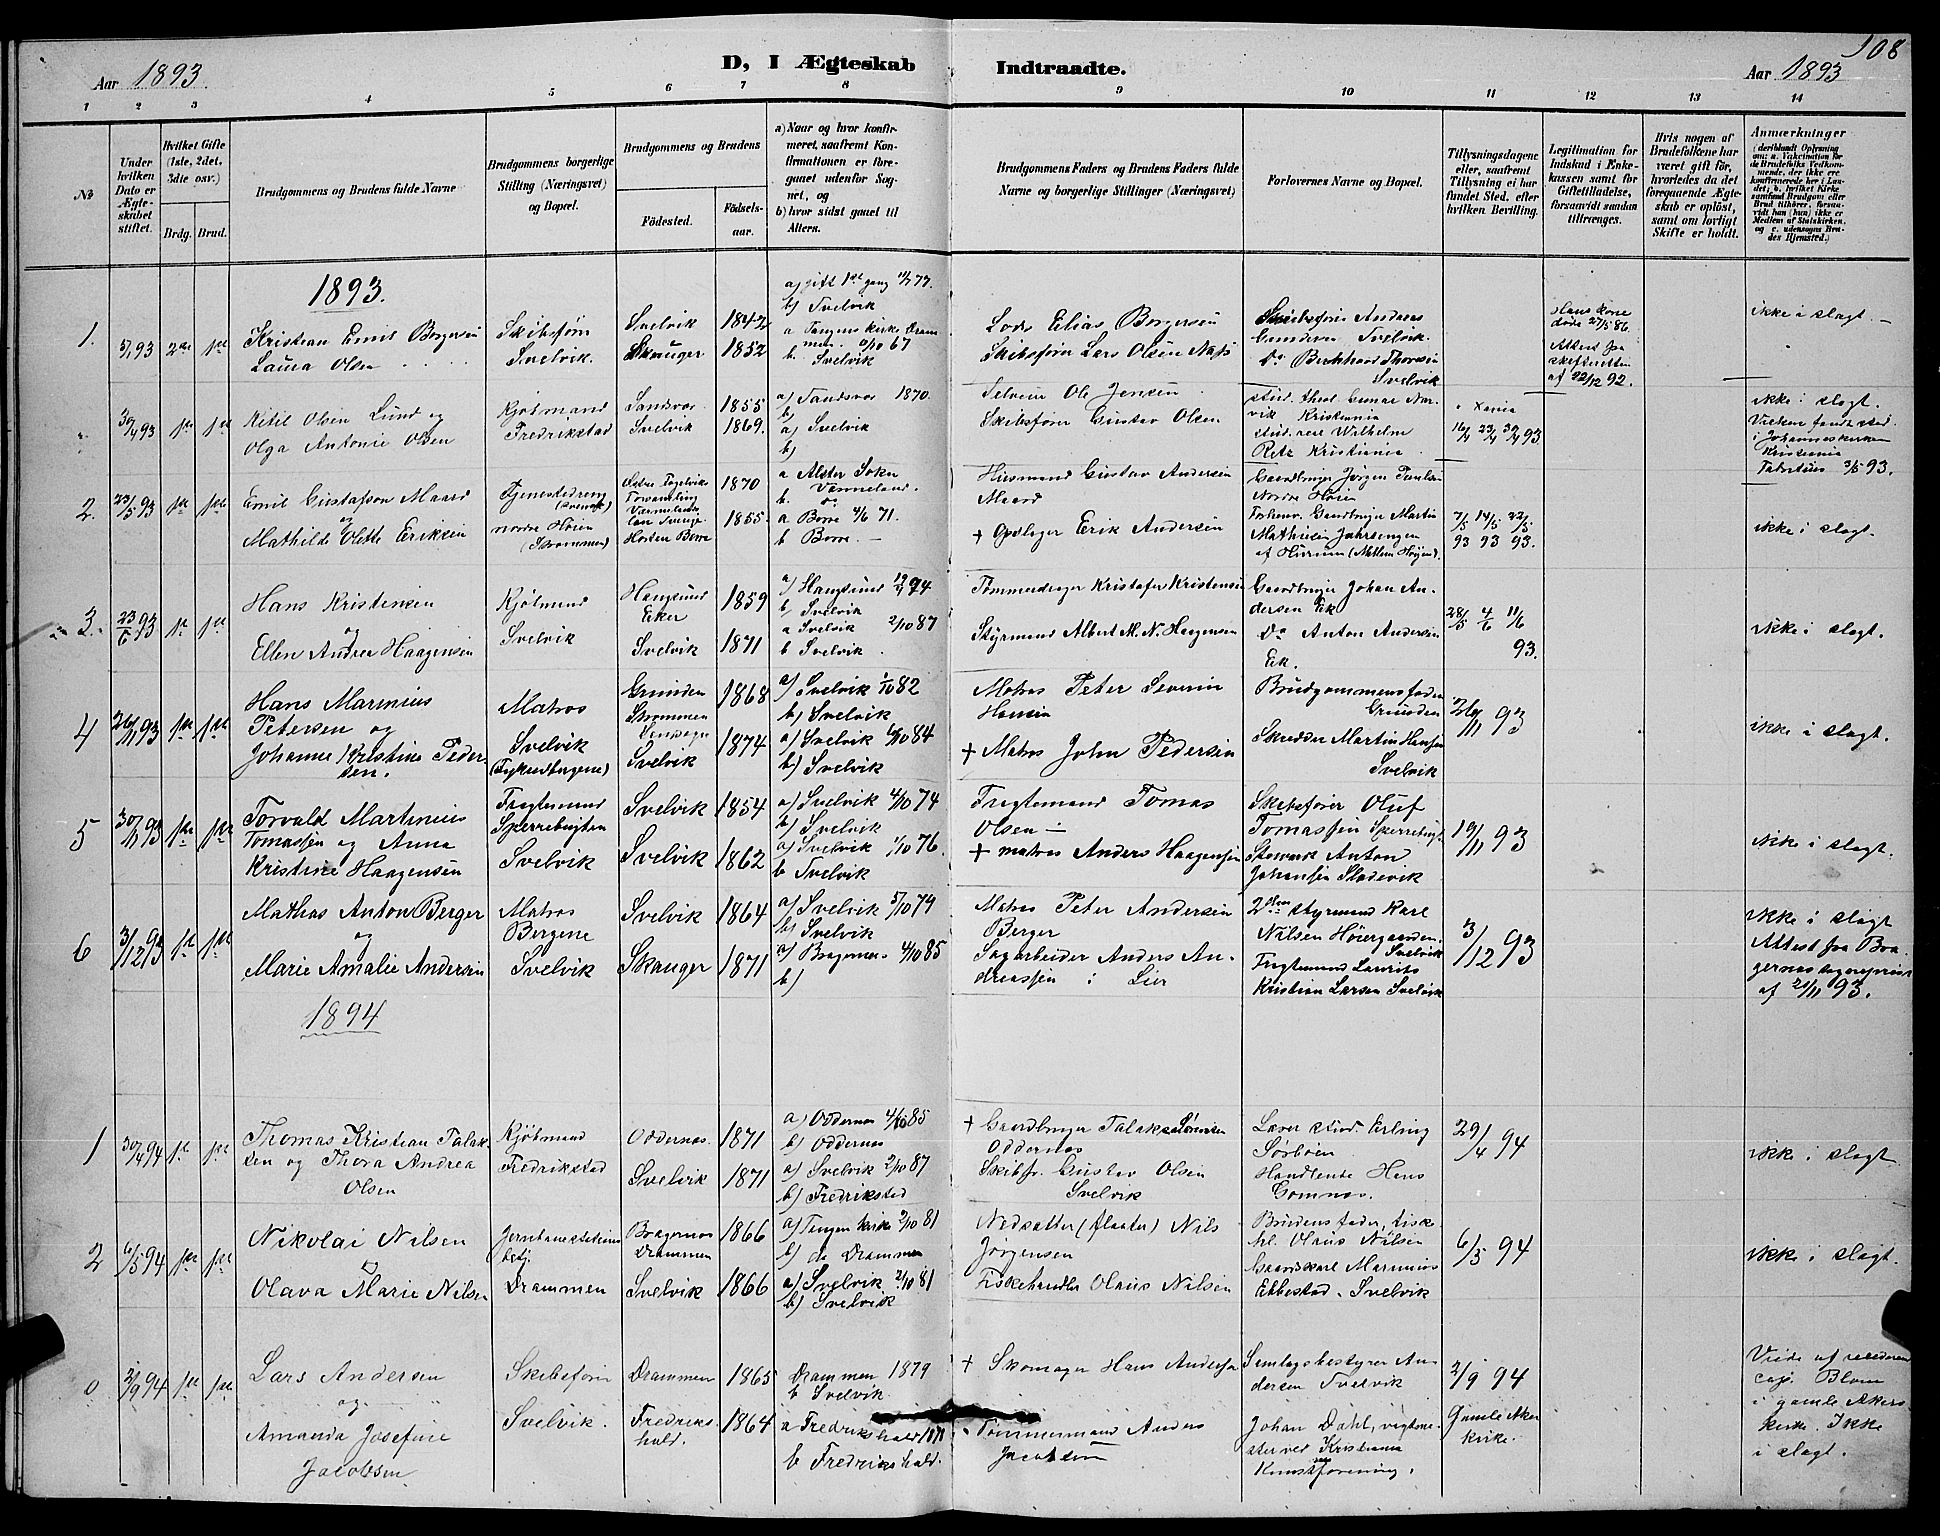 108
Aar 1893.
D, I Ægteskab Indtraadte.
Aar 1893
1 2 3 4 5 6 7 8 9 10 11 12 13 14
№
Under hvilken Dato er Ægteskabet stiftet.
Hvilket Gifte (1ste, 2det, 3die osv.)
Brdg. Brud.
Brudgommens og Brudens fulde Navne
Brudgommens borgerlige Stilling (Næringsvei) og Bopæl.
Brudgommens og Brudens
Födested.
Födselsaar.
a) Naar og hvor konfirmeret, saafremt Konfirmationen er foregaaet udenfor Sognet, og
b) hvor sidst gaaet til Alters.
Brudgommens Faders og Brudens Faders fulde Navne og borgerlige Stillinger (Næringsvei)
Forlovernes Navne og Bopæl.
Tillysningsdagene eller, saafremt Tillysning ei har fundet Sted, efter hvilken Bevilling.
Legitimation for Indskud i Enkekassen samt for Giftetilladelse, forsaavidt saadan tiltrænges.
Hvis nogen af Brudefolkene har været gift før, hvorledes da det foregaaende Ægteskab er oplöst, samt om lovligt Skifte er holdt.
Anmærkninger (deriblandt Oplysning om: a. Vakcination for de Brudefolks Vedkommende, der ikke ere konfirmerede her i Landet; b. hvilket Kirkesamfund Brudgom eller Brud tilhörer, forsaavidt han (hun) ikke er Medlem af Statskirken, og c. udensogns Brudes Hjemsted.)
1893.
1. 5/1 93 2den 1ste
Kristian Emil Borgersen
Laura Olsen
Skibsfører
Svelvik.
Svelvik 1842
Skauger 1852
a) gift 1ste gang 77.
b) Svelvik
a Tangens kirke Drammen. 67
b. Svelvik
Lods Elias Borgersen
Skibsfører Lars Olsen Næs
Skibsfører Andreas
Gundersen Svelvik.
Do Berthard Thoresen
Svelvik
Hans Kone døde 27/5 86.
Attest fra skifteretten af 22/12 92.
ikke i slægt. —
30/4 93 1ste 1ste
Ketil Olsen Lund og
Olga Antonie Olsen
Kjøbmand
Fredrikstad
Sandsvær 1855
Svelvik 1869.
a) Sandsvær 1870.
b)
a) Svelvik
b)
Selveier Ole Jensen
Skibsfører Gustav Olsen
stud. theol. Gunar Narvik Kristiania
stud. real Wilhelm
Retz Kristiania
Xania
16/4 23/4 30/4 93
ikke i slægt.
Vielsen fandt sted
i Johanneskirken
Kristiania
3/5 93.
2. 23/5 93 1ste 1ste
Emil Gustafson Maard
og
Mathilde Olette Eriksen
Tjenestedreng
(svensk)
nordre Høien
(Strømmen)
1870
Horten Borre 1855.
a Alster Sokn
b. Värmeland.
a Borre 4/6 71.
b Borre. —
Husmand Gustav Andersen
Maard
+ Oplager Erik Andersen
Gaardbruger Jørgen Paulsen
Nordre Høien
Gaardbruger Martin
Mathisen Jahrsengen
af Hurum
7/5 14/5 22/5
93 93 93.
ikke i slægt.
3. 23/6 93 1ste 1ste
Hans Kristensen
og
Ellen Andrea Haagensen
Kjøbmand
Svelvik
Haugsund
Eker 1859
Svelvik 1871
a) Haugsund
b) Svelvik
a Svelvik 2/10 87
b Svelvik.
Tømmerdrager Kristofer Kristensen
Styrmand Albert M. N. Haagensen
Gaardbruger Johan Andersen Eik
Do Anton Andersen
Eik.
28/5 4/6 11/6
93.
ikke i slægt.
4 26/11 93 1ste 1ste
Hans Marinius
Petersen og
Johanne Kristine Pedersen.
Matros
Svelvik
Grunden
Strømmen 1868
Svelvik 1874
a) Svelvik 1/10 82
b) Svelvik
a) Svelvik 84
b) Svelvik
Matros Peter Severin
Hansen
+ Matros John Pedersen
Brudgommens fader
Grunden
Skrædder Martin Hansen
Svelvik
26/11 93
ikke i slægt.
5 30/11 93 1ste 1ste
Torvald Martinius
Tomassen og Anna
Kristine Haagensen
Fragtemand
Sperrebugten
Svelvik
Svelvik 1854
Svelvik 1862
a) Svelvik 4/10 74
b) Svelvik
a) Svelvik 1/10 76.
b Svelvik
Fragtemand Tomas
Olsen —
+ matros Anders Haagensen
Skibsfører Oluf
Tomassen Sperrebugt
Anton
Johansen
19/11 93
ikke i slægt.
6 3/12 93 1ste 1ste
Mathas Anton Berger
og
Marie Amalie Andersen
Matros
Bergene
Svelvik
Svelvik 1864
Skauger 1871
a) Svelvik 5/10 79
b) Svelvik
a) Bragernes 4/10 85
b)
Matros Peter Andersen
Berger
Sagarbeider Anders Andreassen i Lier
2den styrmand Karl
Nilsen Høiergaarden.
Svelvik
Fragtemand Laurits
Kristian Larsen Svelvik
3/12 93
ikke i slægt
Attest fra Bragernes sogneprest
af 21/11 93.
1894
1 30/4 94 1ste 1ste
Thomas Kristian Talaksen og Thora Andrea
Olsen
Kjøbmand
Fredrikstad
Oddernes. 1871
Svelvik 1871
a) Oddernes 4/10 85
b) Oddernes
a) Svelvik 2/10 87
b) Fredrikstad
+ Gaardbruger Talak
Oddernes
Skibsfr. Gustav Olsen
Svelvik
Lærer stud. Erling
Sørbøen
Handlende Hans
Gomnæs.
29/4 94
ikke i slægt
2 6/5 94 1ste 1ste
Nikolai Nilsen
og
Olava Marie Nilsen
Drammen
Bragernes
Drammen 1866
Svelvik 1866
a) Tangen kirk 2/10 81
b) do Drammen
a) Svelvik 2/10 81
b) Svelvik
Nedsætter (fløter) Nils
Jørgensen
Fiskehandler Olaus Nilsen
Brudens fader, fiskhl. Olaus Nilsen
Gaardskarl Marinius
Ebbestad. Svelvik
6/5 94
ikke i slægt.
0 2/9 94 1ste 1ste
Lars Andersen
og
Amanda Josefine
Jacobsen
Skibsfører
Svelvik.
Drammen 1865
Fredrikshald. 1864
Drammen 1879
b Svelvik
a Fredrikshald
b Fredrikshald.
+ Skomager Hans Andersen
Tømmermand Anders
Jacobsen
Samlagsbestyrer Andersen Svelvik
Johan Dahl, vigtmester ved Kristiania
Kunstforening.
2/9 94
Gamle Aker
kirke.
Viede af residerende
cap. Blom
i gamle Akers
kirke. Ikke
i slægt.